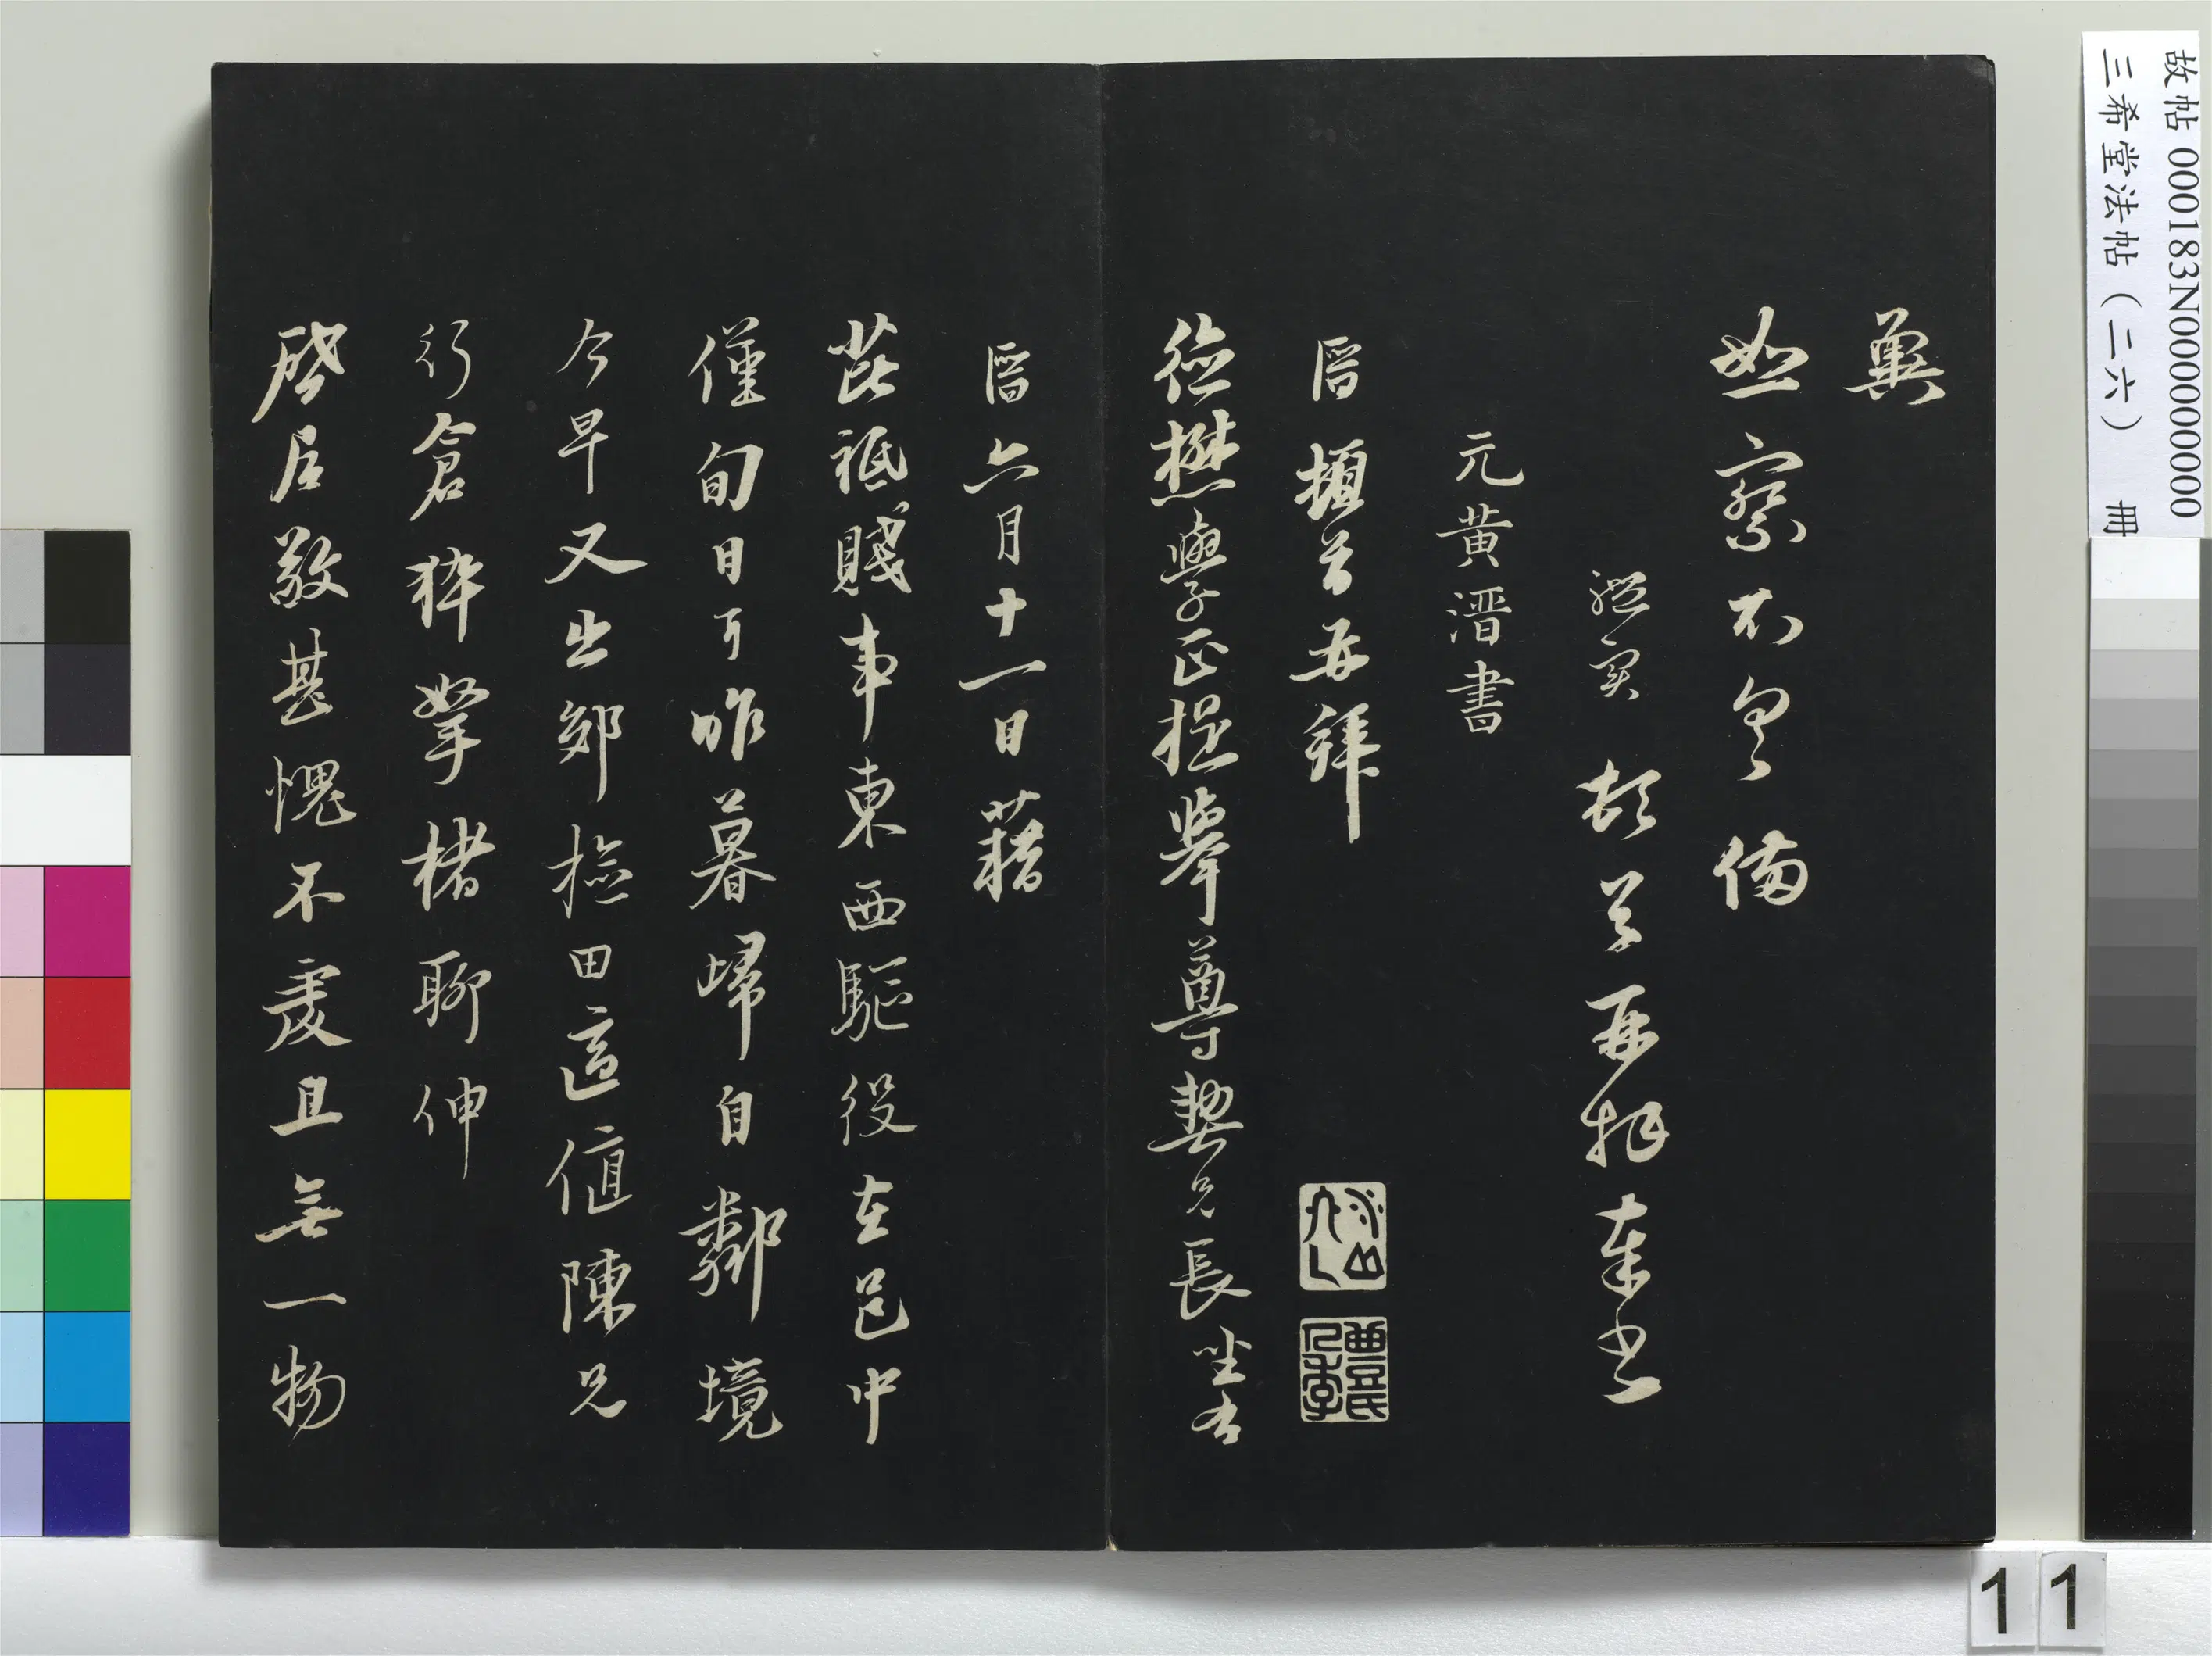 冀
照察不宣備
頓首再拜奉書
元黃溍書
溍頓首再拜
德懋學正提舉尊契兄長坐右
溍六月十一日藉
茈祗賤事東西驅役在邑中
僅旬日耳昨暮歸自鄰境
今早又出郊撿田適值陳兄
行倉猝拏楮聊伸
啓居敬甚愧不虔且無一物
故帖 000183N000000000
三希堂法帖（二六） 冊
11